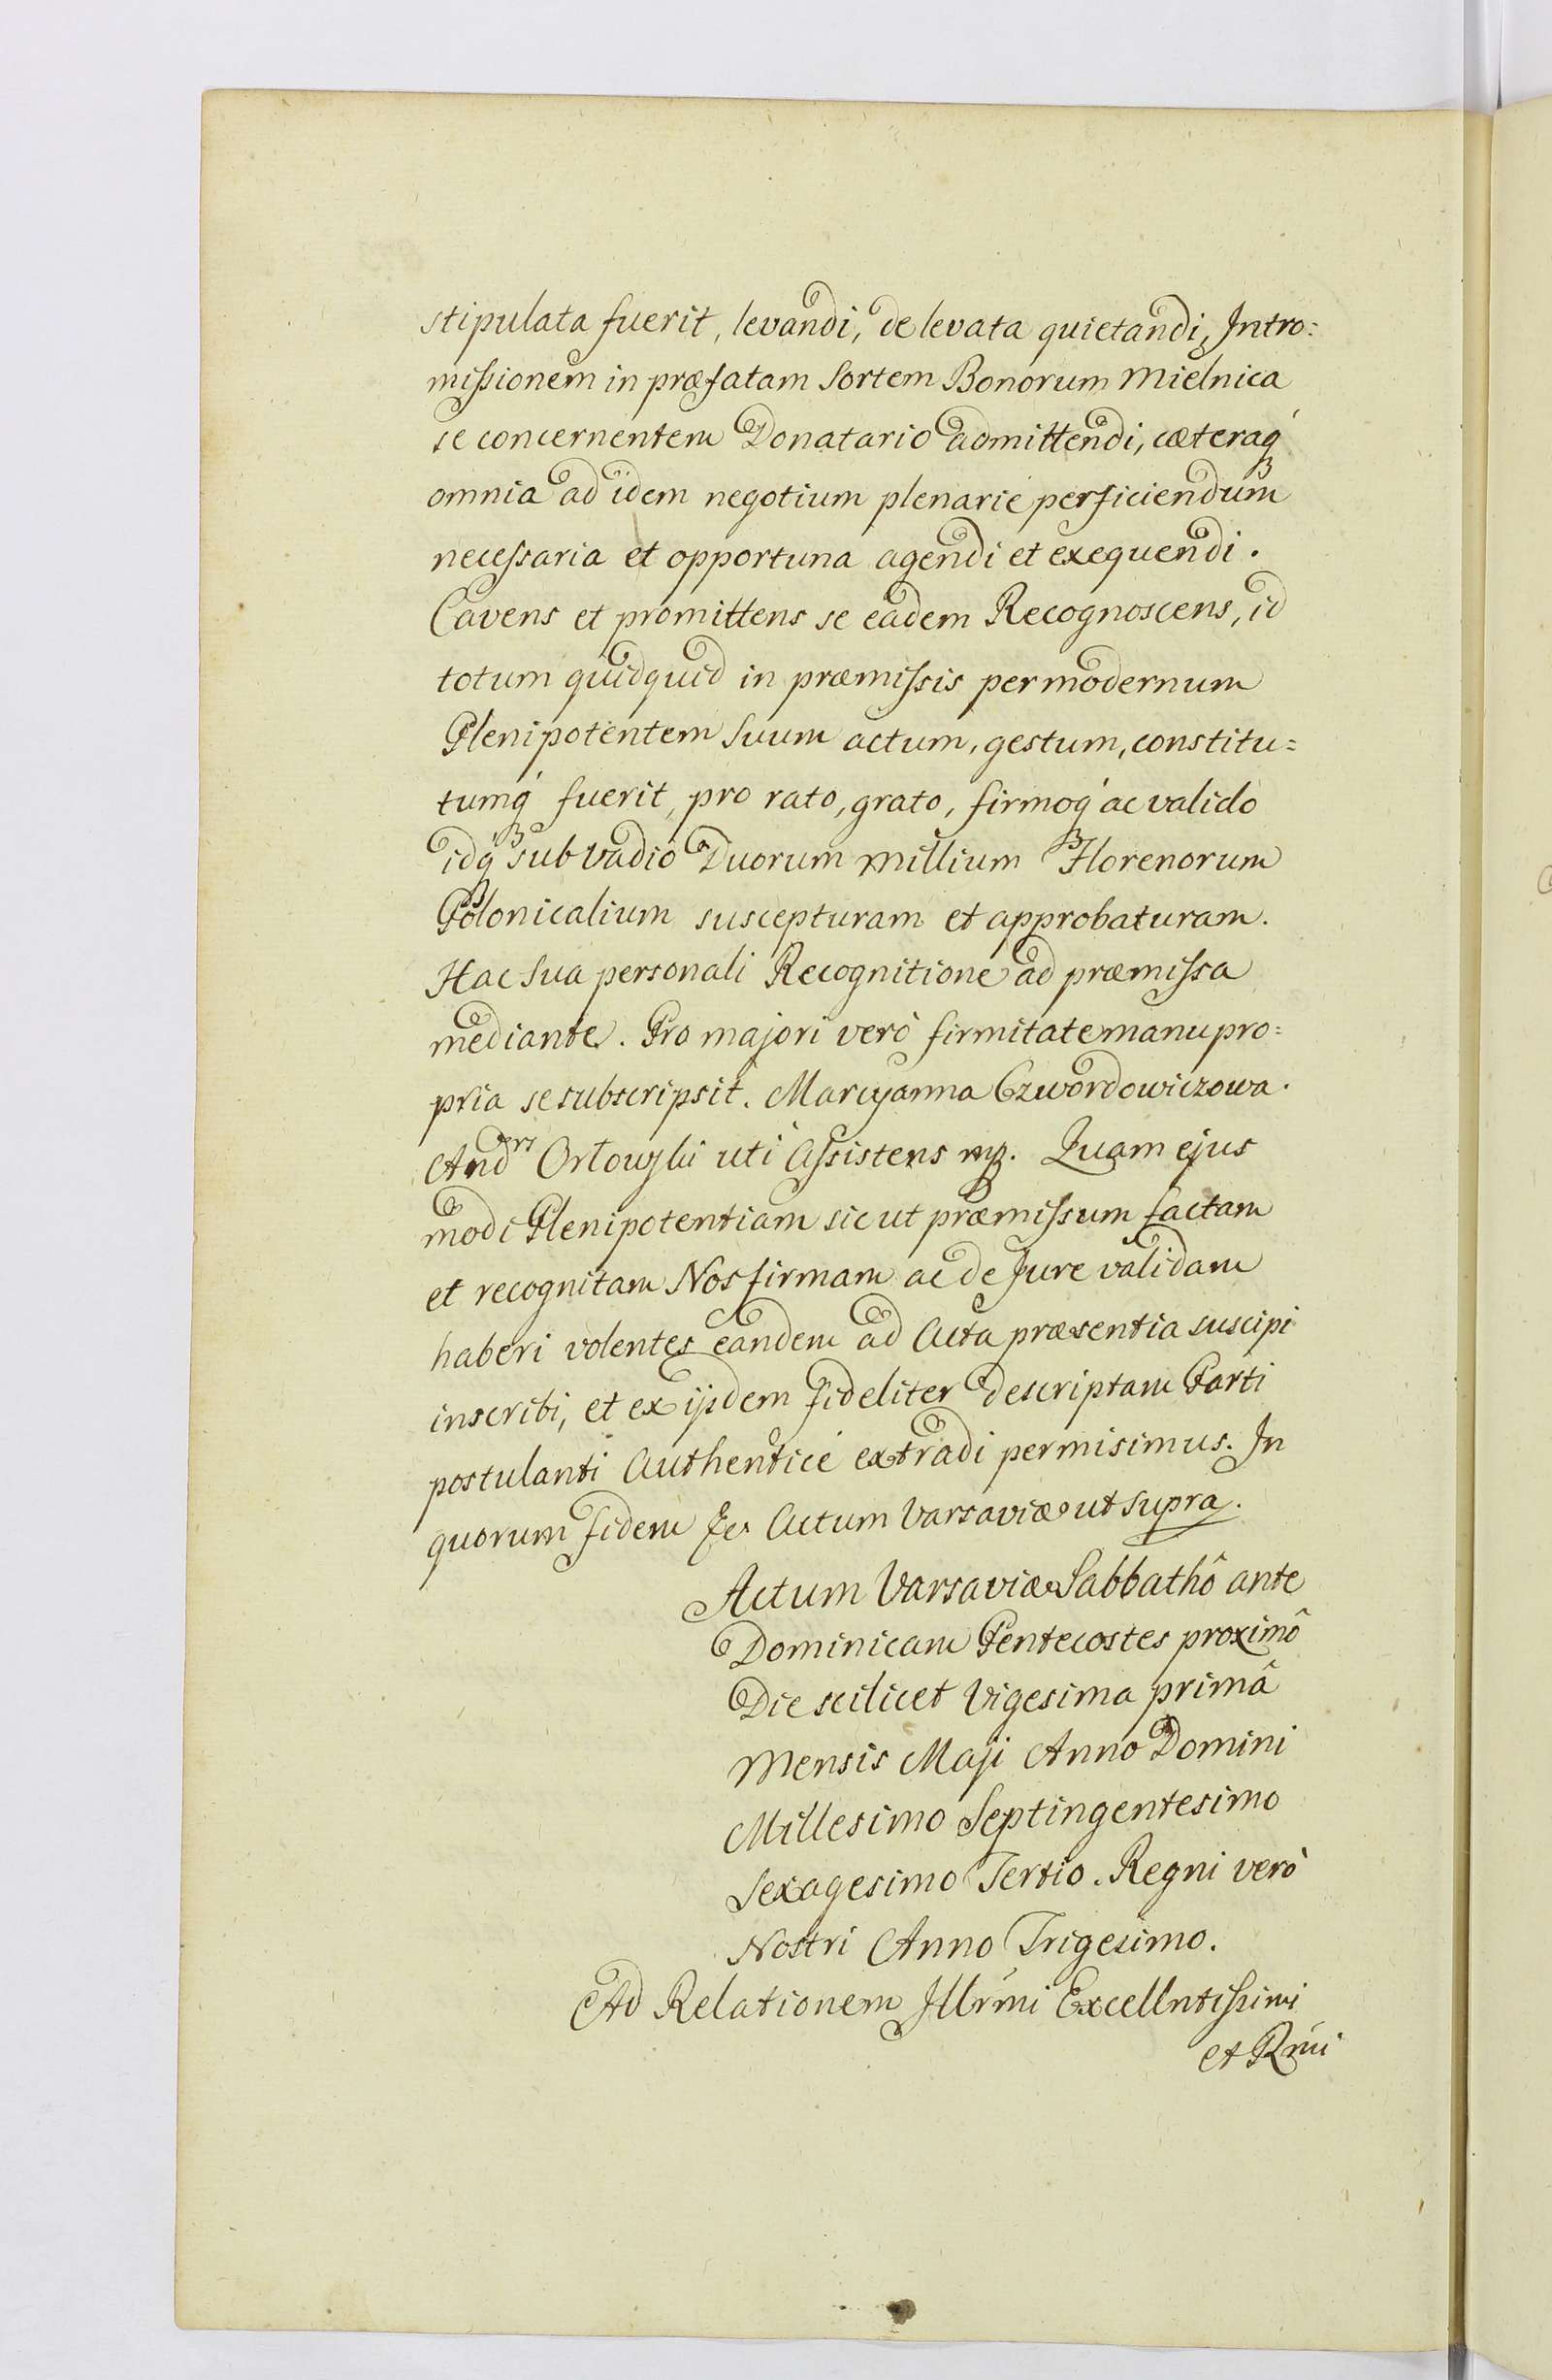 stipulata fuerit, levandi, de levata quietandi, Intro:
miſsionem in præfatam Sortem Bonorum Mielnica
se concernentem Donatario admittendi, cæteraq́
omnia ad idem negotium plenariè perficiendum
neceſsaria et opportuna agendi et exequendi.
Cavens et promittens se eadem Recognoscens, id
totum quidquid in præmiſsis per modernum
Plenipotentem Suum actum, gestum, constitu=
tumq́ fuerit, pro rato, grato, firmoq́ ac valido
idq́ sub vadio Duorum Millium Florenorum
Polonicalium suscepturam et approbaturam.
Hac Sua personali Recognitione ad præmiſsa
mediante. Pro majori verò firmitate manu pro=
pria se subscripsit. Maryanna Czwordowiczowa.
And Orłowski uti Aſsistens mp. Quam ejus
modi Plenipotentiam sicut præmiſsum factam
et recognitam Nos firmam ac de Jure validam
haberi volentes eandem ad Acta præsentia suscipi
inscribi, et ex ijsdem fideliter descriptam Parti
postulanti Authenticè extradi permisimus. In
quorum fidem &c. Actum Varsaviæ ut supra.
Actum Varsaviæ Sabbathô ante
Dominicam Pentecostes proximô
Die scilicet Vigesima primâ
Mensis Maji Anno Domini
Millesimo Septingentesimo
Sexagesimo Tertio. Regni verò
Nostri Anno Trigesimo.
Ad Relationem Illrmi Excellntiſsimi
et Rmi